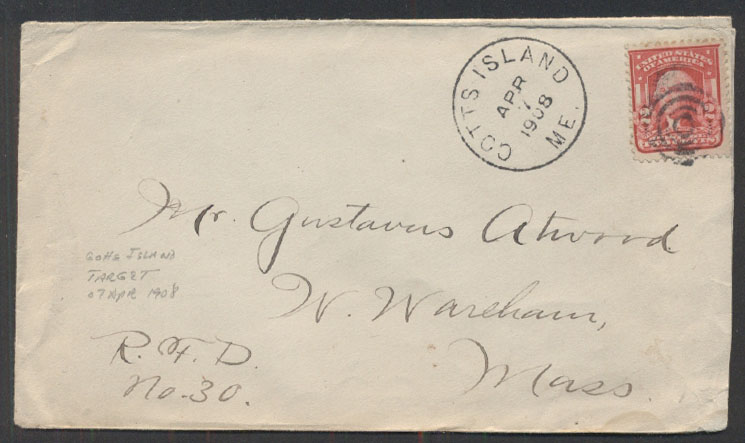 COTTS ISLAND
APR
7
1908
ME.
UNITED STATES
OF AMERICA
Mr. Gustavus Atwood
W. Wareham,
Mass.
R. F. D.
No. 30.
Gotts Island
TARGET
07 APR 1908